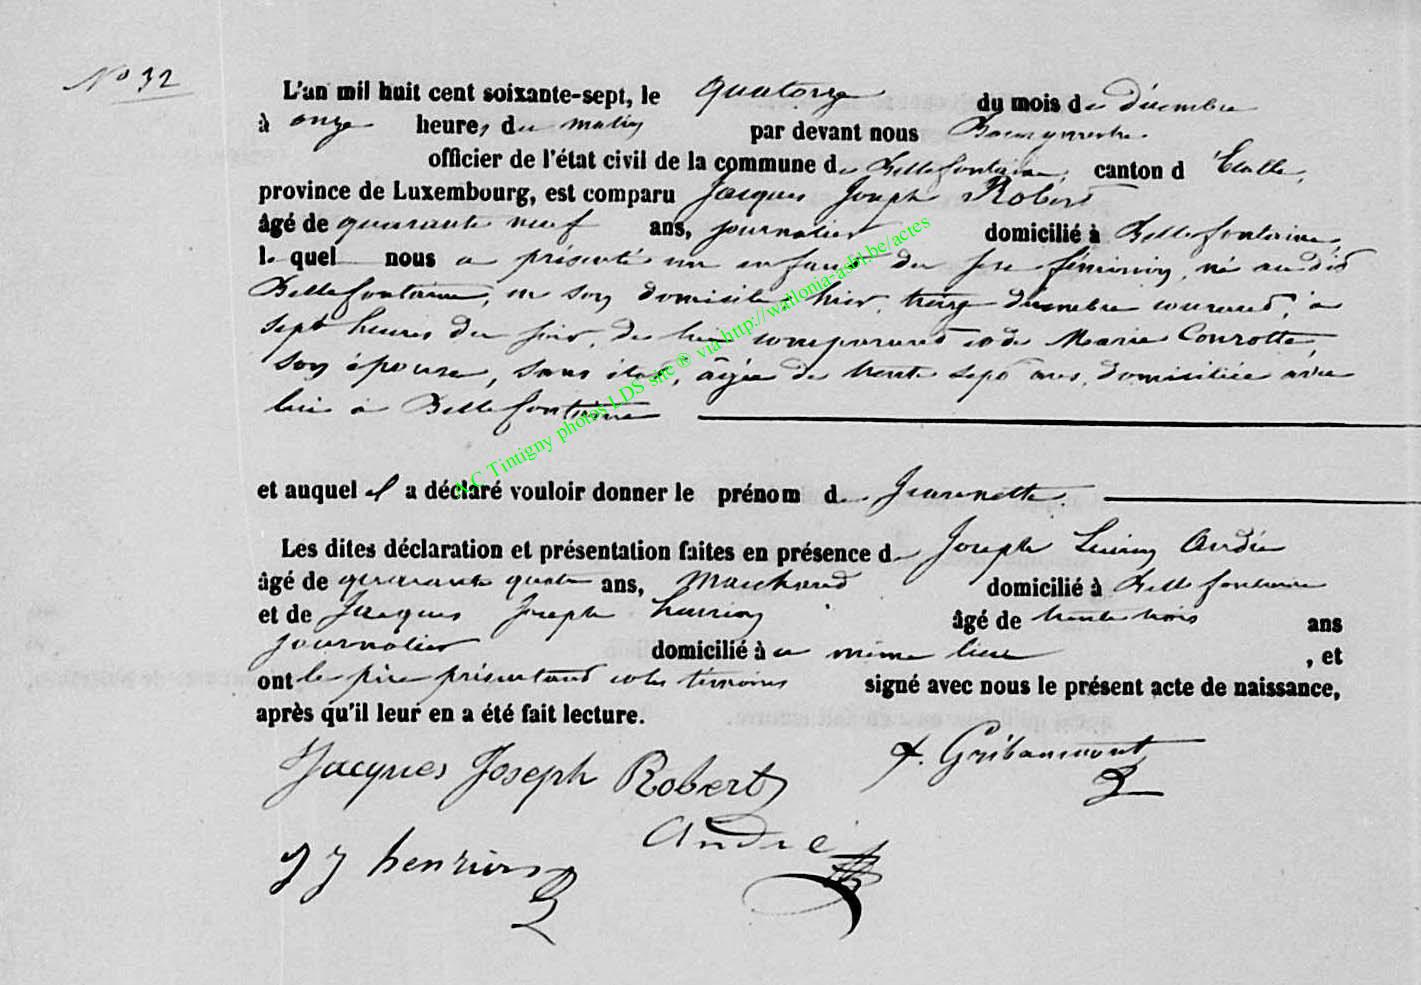 N° 32
L'an mil huit cent soixante-sept, le quatorze du mois de décembre
à onze heures du matin par devant nous Bourgmestre
officier de l'état civil de la commune de Bellefontaine, canton d'Etalle,
province de Luxembourg, est comparu Jacques Joseph Robert
âgé de quarante neuf ans, journalier domicilié à Bellefontaine,
lequel nous a présenté un enfant du sexe féminin, né audit
Bellefontaine, en son domicile hier, treize décembre courant, à
sept heures du soir, de lui comparant et de Marie Conrotte,
son épouse, sans état, âgée de trente sept ans, domiciliée avec
lui à Bellefontaine
et auquel il a déclaré vouloir donner le prénom de Jeannette.
Les dites déclaration et présentation faites en présence de Joseph André
âgé de quarante quatre ans, Marchand domicilié à Bellefontaine
et de Jacques Joseph henrion âgé de trente trois ans
journalier domicilié à u même lieu , et
ont le père présentant et les témoins signé avec nous le présent acte de naissance,
après qu'il leur en a été fait lecture.
Jacques Joseph Robert
f. Gribaumont
J J henrion
André
A.C Tintigny photos LDS site ® via http://wallonia-asbl.be/actes